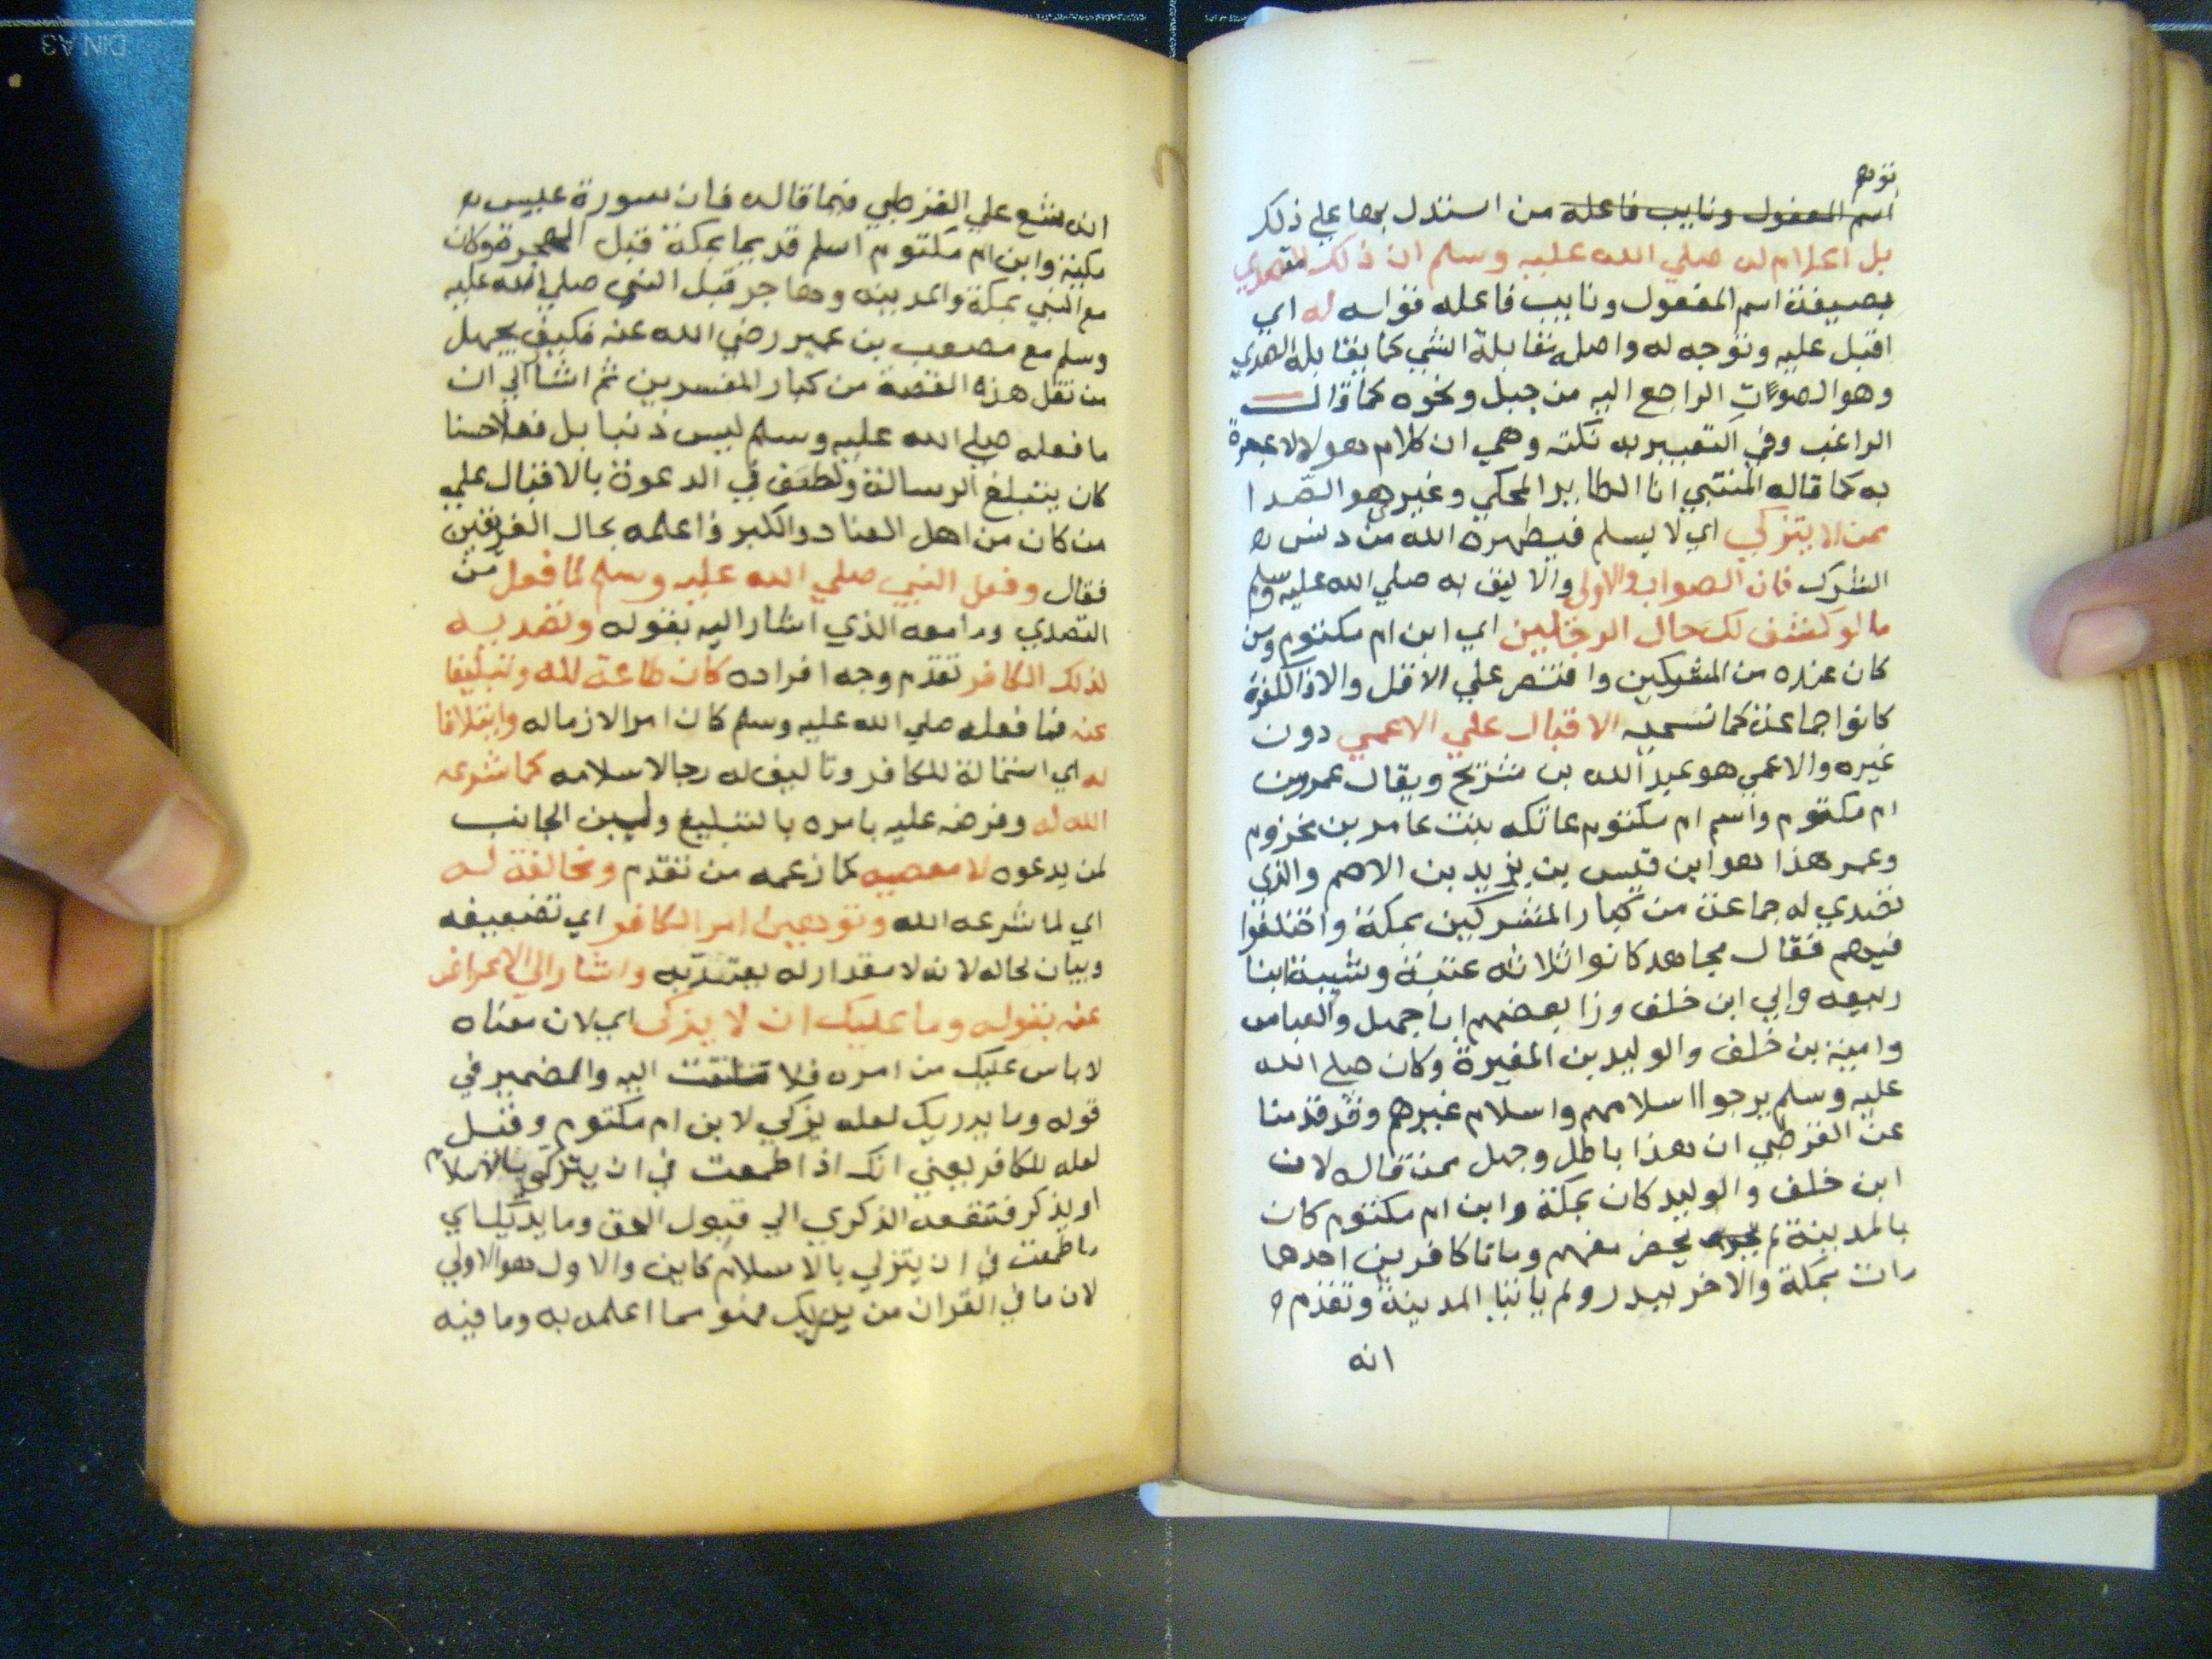 توهم
اسم المفعول ونايب فاعله من استدل بها علي ذلك
بل اعلام له صلي الله عليه وسلم ان ذلك المتصدي
بصيغة اسم المفعول ونايب فاعله قوله له اي
اقبل عليه وتوجه له واصله مقابلة الشي كما يقابله الصدي
وهو الصوت الراجع اليه من جبل ونحوه كما قال
الراغب وفي التعبير به نكته وهي ان كلام هولا لا عبرة
به كما قاله المتنبي انا الطاير المحكي وغيري هو الصدا
ممن لا يتزكي اي لا يسلم فيطهره الله من دنس
الشرك فان الصواب والاولي والاليق به صلي الله عليه وسلم
ما لو كشف لك حال الرجلين اي ابن ام مكتوم ومن
كان عنده من المشركين واقتصر علي الاقل والا فالكفرة
كانوا جماعة كما نسميه الاقبال علي الاعمي دون
غيره والاعمي هو عبد الله بن شريح ويقال عمرو بن
ام مكتوم واسم ام مكتوم عاتكه بنت عامر بن مخزوم
وعمر هذا هو ابن قيس بن يزيد بن الاصم والذي
تصدي له جماعة من كبار المشركين بمكة واختلفوا
فيهم فقال مجاهد كانوا ثلاثه عتبة وشيبة ابنا
ربيعه وابي ابن خلف وزا بعضهم ابا جهل والعباس
وامية بن خلف والوليد بن المغيرة وكان صلي الله
عليه وسلم يرجوا اسلامهم واسلام غيرهم وقد قدمنا
عن القرطبي ان هذا باطل وجهل ممن قاله لان
ابن خلف والوليد كان بمكة وابن ام مكتوم كان
بالمدينة لم يحضر معهم وماتا كافرين احدهما
مات بمكة والاخر ببدر ولم ياتيا المدينة وتقدم
انه
انه شنع علي القرطبي فيما قاله فان سورة عبس
مكية وابن ام مكتوم اسلم قديما بمكة قبل الهجرة وكان
مع النبي بمكة والمدينه وهاجر قبل النبي صلي الله عليه
وسلم مع مصعب بن عمير رضي الله عنه فكيف يجهل
من نقل هذه القصة من كبار المفسرين ثم اشار الي ان
ما فعله صلي الله عليه وسلم ليس ذنبا بل فعلا حسنا
كان يتبلغ الرسالة ولطف في الدعوة بالاقبال علي
من كان من اهل العناد والكبر فاعلمه بحال الفريقين
فقال وفعل النبي صلي الله عليه وسلم لما فعل من
التصدي وما معه الذي اشار اليه بقوله وتصديه
لذلك الكافر تقدم وجه افراده كان طاعة لله وتبليغا
عنه فما فعله صلي الله عليه وسلم كان امرا لازما له وايتلافا
له اي استمالة للكافر وتاليف له رجا لاسلامه كما شرعه
الله له وفرضه عليه بامره بالتبليغ ولين الجانب
لمن يدعوه لا معصيه كما زعمه من تقدم ومخالفة له
اي لما شرعه الله وتوهين امر الكافر اي تضعيفه
وبيان لحاله لانه لا مقدار له يعتد به واشار الي الاعراض
عنه بقوله وما عليك ان لا يزكي اي لان معناه
لا باس عليك من امره فلا تلتفت اليه والضمير في
قوله وما يدريك لعله يزكي لابن ام مكتوم وقيل
لعله للكافر يعني انك اذا طمعت في ان يتزكي بالاسلام
او يذكر فتنفعه الذكري الي قبول الحق وما يدريك اي
ما طمعت في ان يتزكي بالاسلام كاين والاول هو الاولي
لان ما في القران من يدريك فهو مما اعلمه به وما فيه